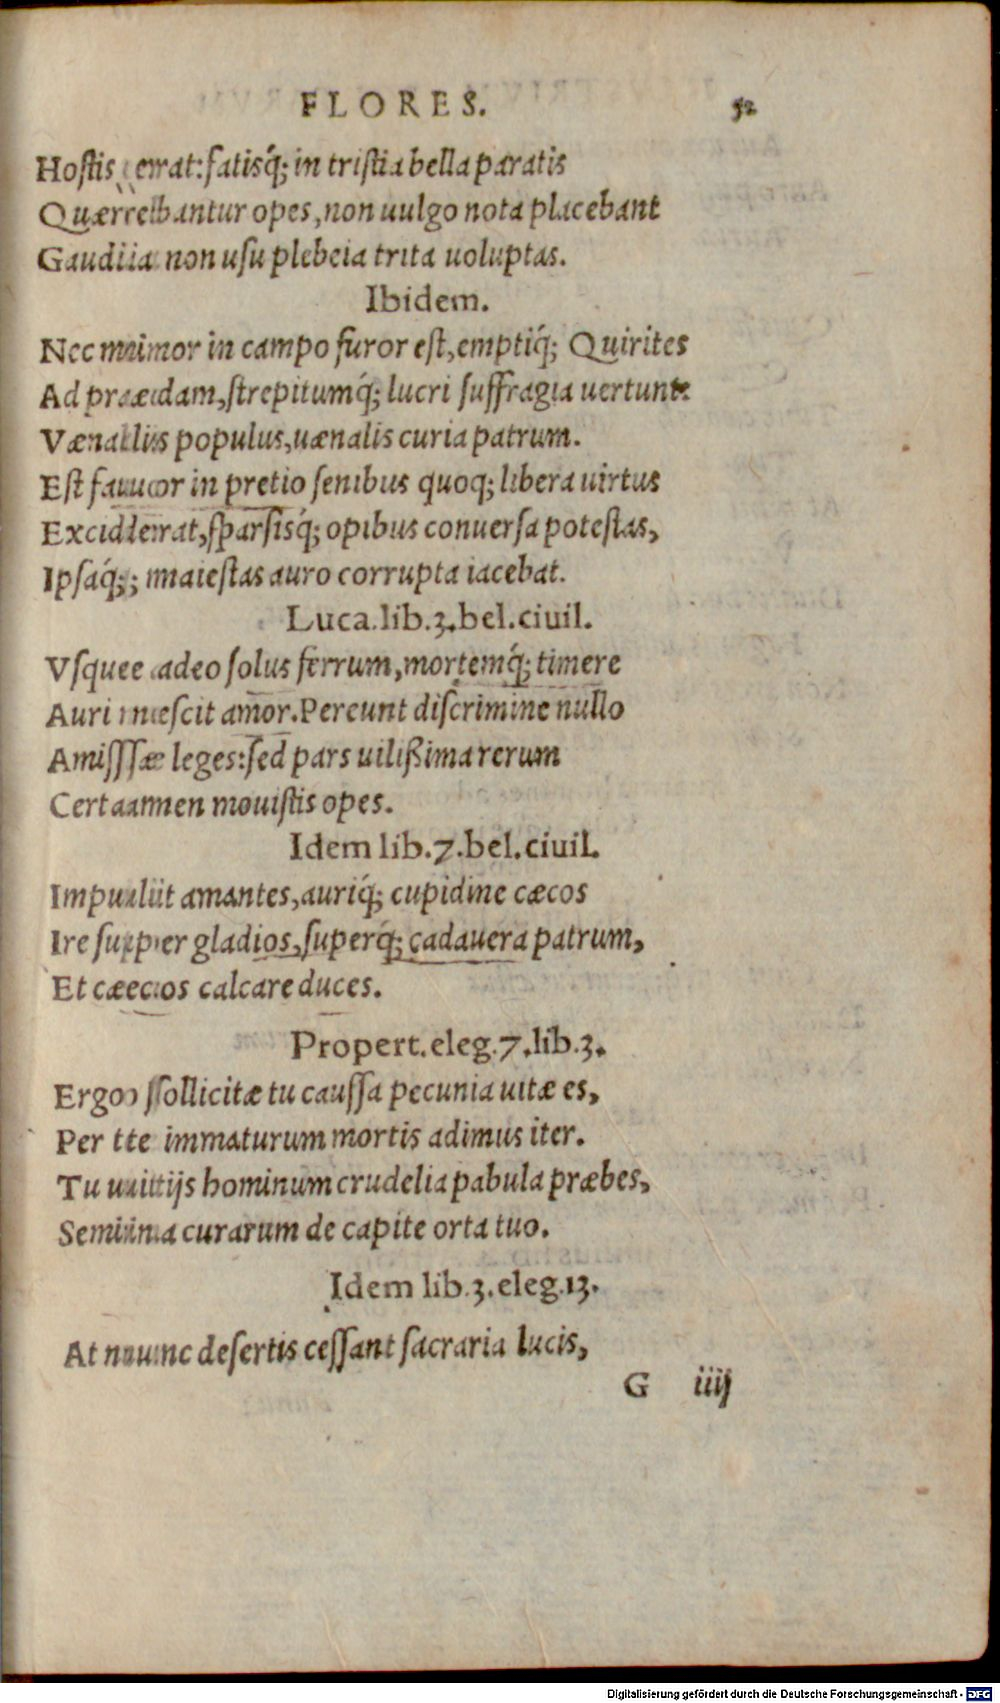 FLORES. 52
Hostis erat: fatisq́; in tristia bella paratis
Quærebantur opes, non uulgo nota placebant
Gaudia non usu plebeia trita uoluptas.
Ibidem.
Nec minor in campo furor est, emptiq́; Quirites
Ad prædam, strepitumq́; lucri suffragia uertunt.
Vænalis populus, uænalis curia patrum.
Est fauor in pretio senibus quoq; libera uirtus
Exciderat, sparsisq́; opibus conuersa potestas,
Ipsaq́; maiestas auro corrupta iacebat.
Luca. lib. 3. bel. ciuil.
Vsque adeo solus ferrum, mortemq́; timere
Auri nescit amor. Pereunt discrimine nullo
Amissæ leges: sed pars uilißima rerum
Certamen mouistis opes.
Idem lib. 7. bel. ciuil.
Impulit amantes, auriq́; cupidine cæcos
Ire super gladios, superq́; cadauera patrum,
Et cæcos calcare duces.
Propert. eleg. 7. lib. 3.
Ergo sollicitæ tu caussa pecunia uitæ es,
Per te immaturum mortis adimus iter.
Tu uitijs hominum crudelia pabula præbes,
Semina curarum de capite orta tuo.
Idem lib. 3. eleg. 13.
At nunc desertis cessant sacraria lucis,
G iiij
Digitalisierung gefördert durch die Deutsche Forschungsgemeinschaft - DFG